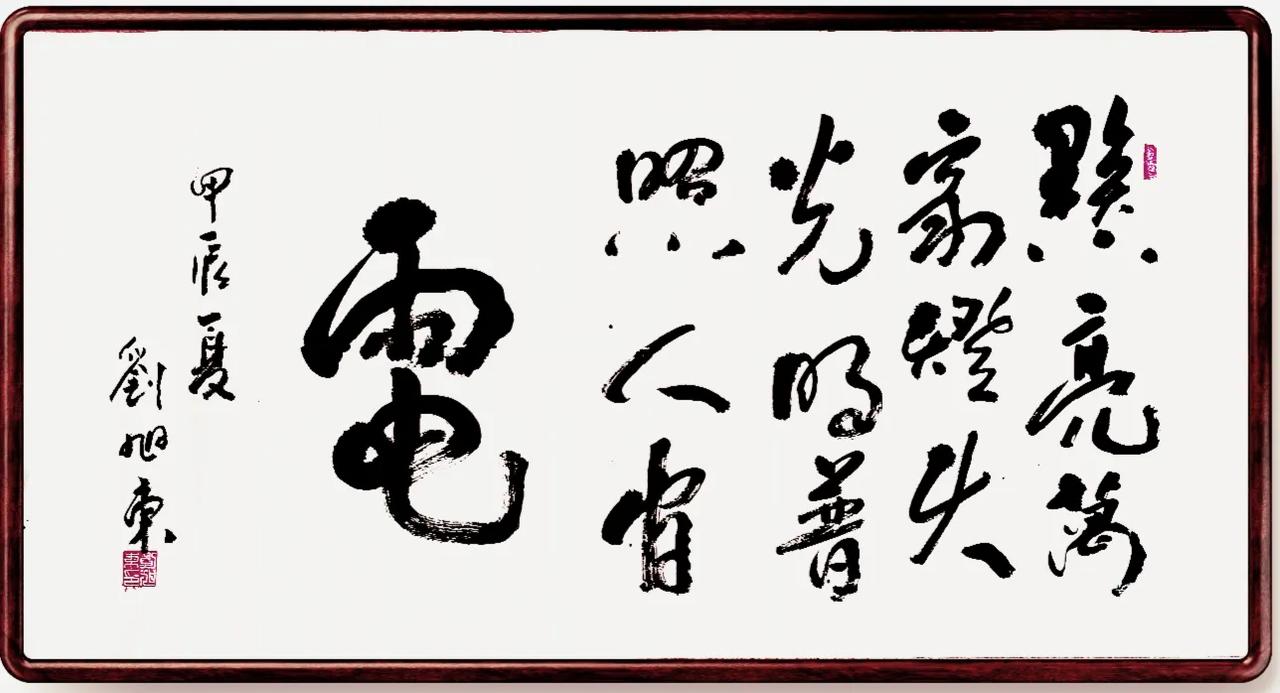 點亮萬
家燈火
光明普
照人間
電
甲辰夏
劉旭東